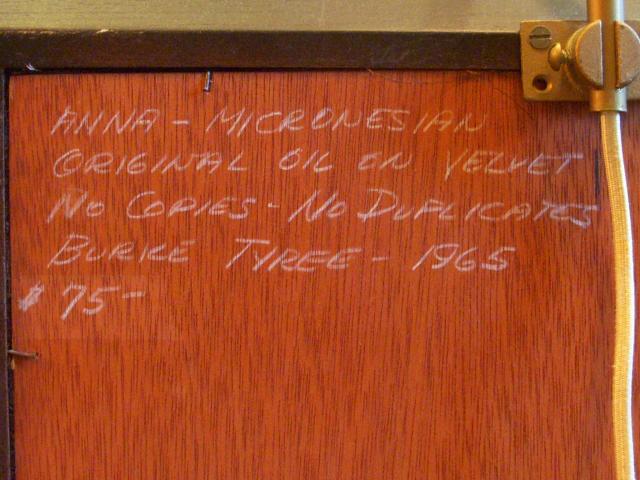 ANNA - MICRONESIAN
ORIGINAL OIL ON VELVET
NO COPIES - NO DUPLICATES
BURKE TYREE - 1965
$75-